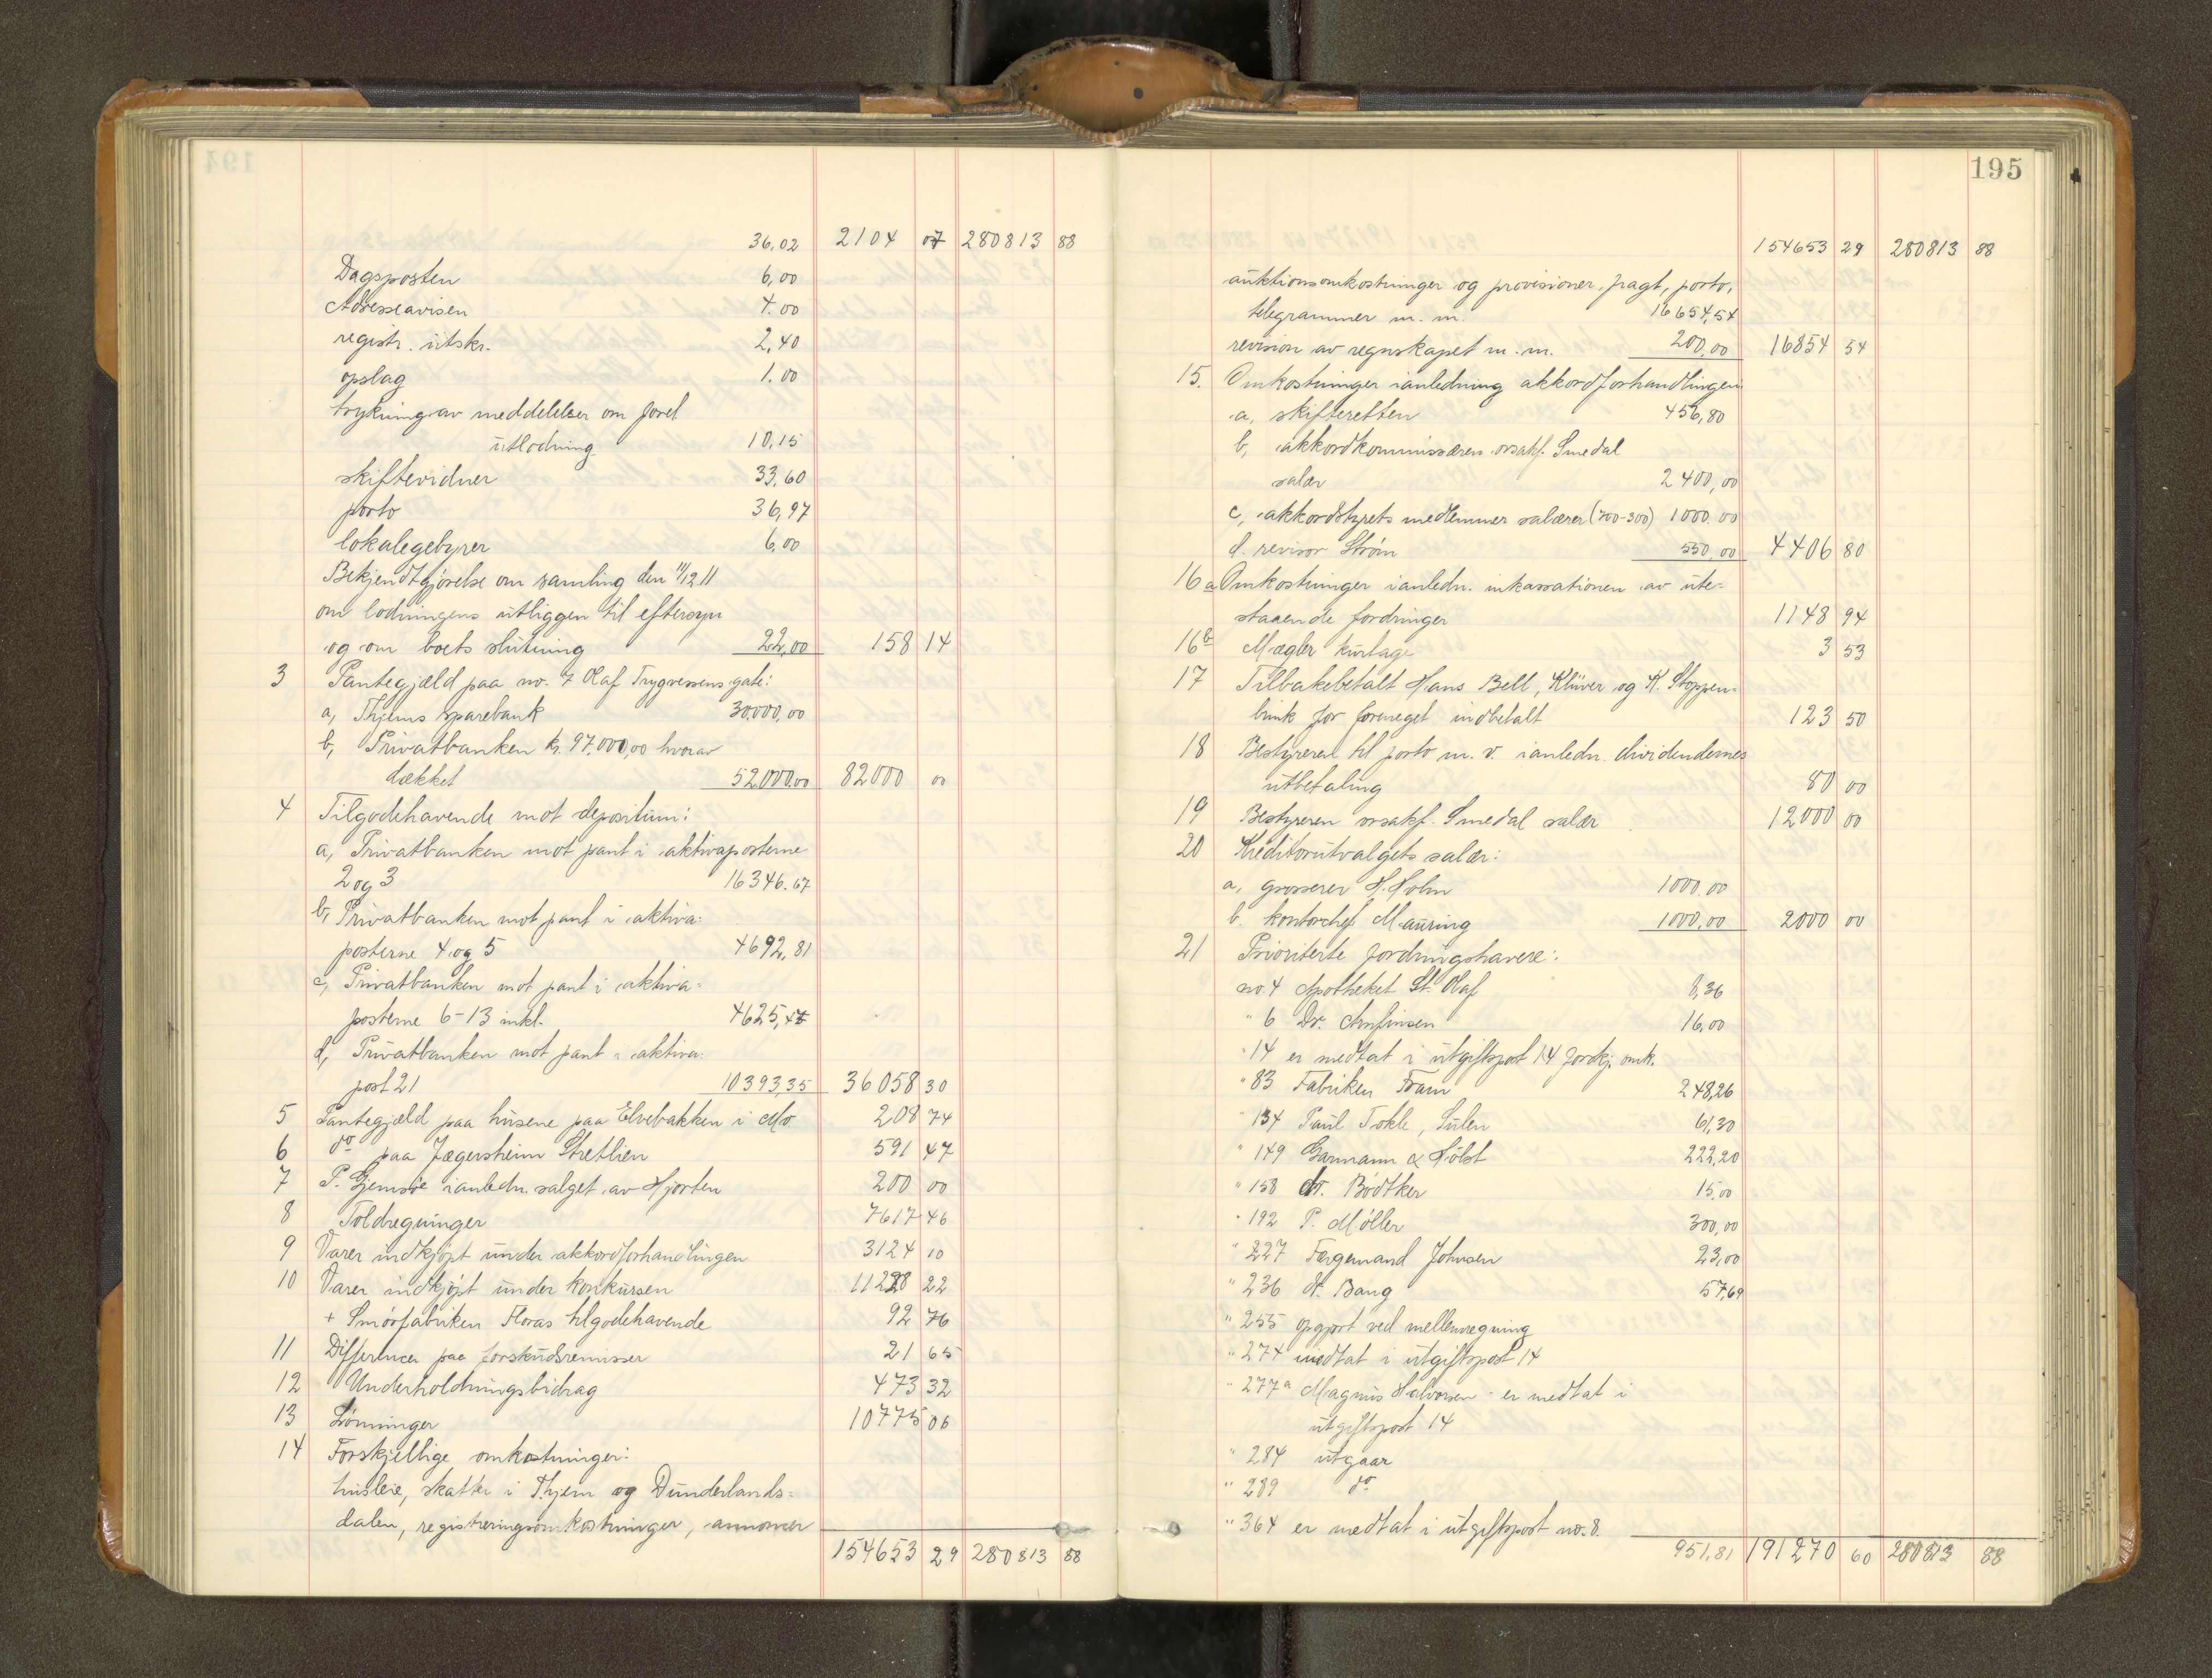 194
36,02 2104 07 280813 88
Dagsposten 6,00
Adresseavisen 4.00
registr. utskr. 2,40
opslag 1.00
trykning av meddelelser om forel
utlodning 10,15
skiftevidner 33,60
porto 36,97
lokalegebyrer 6,00
Bekjendtgjørelse om samling den 11/12 11
om lodningens utliggen til eftersyn
og om boets slutning 22,00 158 14
3 Pantegjæld paa no. 7 Olaf Trygvessens gate:
a, Thjems sparebank 30.000,00
b, Privatbanken kr. 97.000,00 hvorav
dækket 52.000.00 82000 00
4 Tilgodehavende mot depositum:
a, Privatbanken mot pant i aktivaposterne
2 og 3 16346.67
b, Privatbanken mot pant i aktiva:
posterne 4 og 5 4692,81
c, Privatbanken mot pant i aktiva=
posterne 6-13 inkl. 4625,47
d, Privatbanken mot pant i aktiva:
post 21 10393,35 36058 30
5 Pantegjæld paa husene paa Elvebakken i Mo 208 74
6 do paa Jægersheim Stretlien 591 47
7 P. Gjemsøe ianledn. salget av Hjorten 200 00
8 Toldregninger 7617 46
9 Varer indkjøpt under akkordforhandlingen 3124 10
10 Varer indkjøpt under konkursen 11228 22
+ Smørfabriken Floras tilgodehavende 92 76
11 Differencer paa forskudsremisser 21 65
12 Underholdningsbidrag 473 32
13 Lønninger 10775 06
14 Forskjellige omkostninger:
husleie, skatter i Thjem og Dunderlands=
dalen, registreringsomkostninger, annoncer
154653 29 280813 88
195
154653 29 280813 88
auktionsomkostninger og provisioner, fragt, porto,
telegrammer m. m. 16654,54
revision av regnskapet m. m. 200,00 16854 54
15. Omkostninger ianledning akkordforhandlingen
a, skifteretten 456,80
b, akkordkommissæren orsakf. Smedal
salær 2400,00
c, akkordstyrets medlemmer salærer (700-300) 1000.00
d. revisor Strøm 550,00 4406 80
16 a Omkostninger ianledn. inkassationen av ute=
staaende fordringer 1148 94
16 b Mægler kurtage 3 53
17 Tilbakebetalt Hans Bell, Klüver og K. Stoppen=
brink for formeget indbetalt 123 50
18 Bestyreren til porto m. v. ianledn. dividendernes
utbetaling 80 00
19 Bestyreren orsakf. Smedal salær 12000 00
20 Kreditorutvalgets salær:
a, grosserer H. Holm 1000.00
b. kontorchef Mauring 1000,00 2000 00
21 Prioriterte fordringshavere:
no. 4 Apotheket St. Olaf 8,36
" 6 Dr. Arnfinsen 16,00
" 14 er medtat i utgiftspost 14 forskj. omk.
" 83 Fabriken Fram 248,26
" 134 Paul Tokle, Sulen 61,30
" 149 Garmann & Holst 222,20
" 158 dr. Bødtker 15,00
" 192 P. Møller 300,00
" 227 Færgemand Johnsen 23,00
" 236 A. Bang 57,69
" 255 opgjort ved mellemregning
" 274 medtat i utgiftspost 14
" 277a Magnus Halvorsen - er medtat i
utgiftspost 14
" 284 utgaar
" 289 do
" 364 er medtat i utgiftspost no. 8.
951,81 191270 60 280813 88